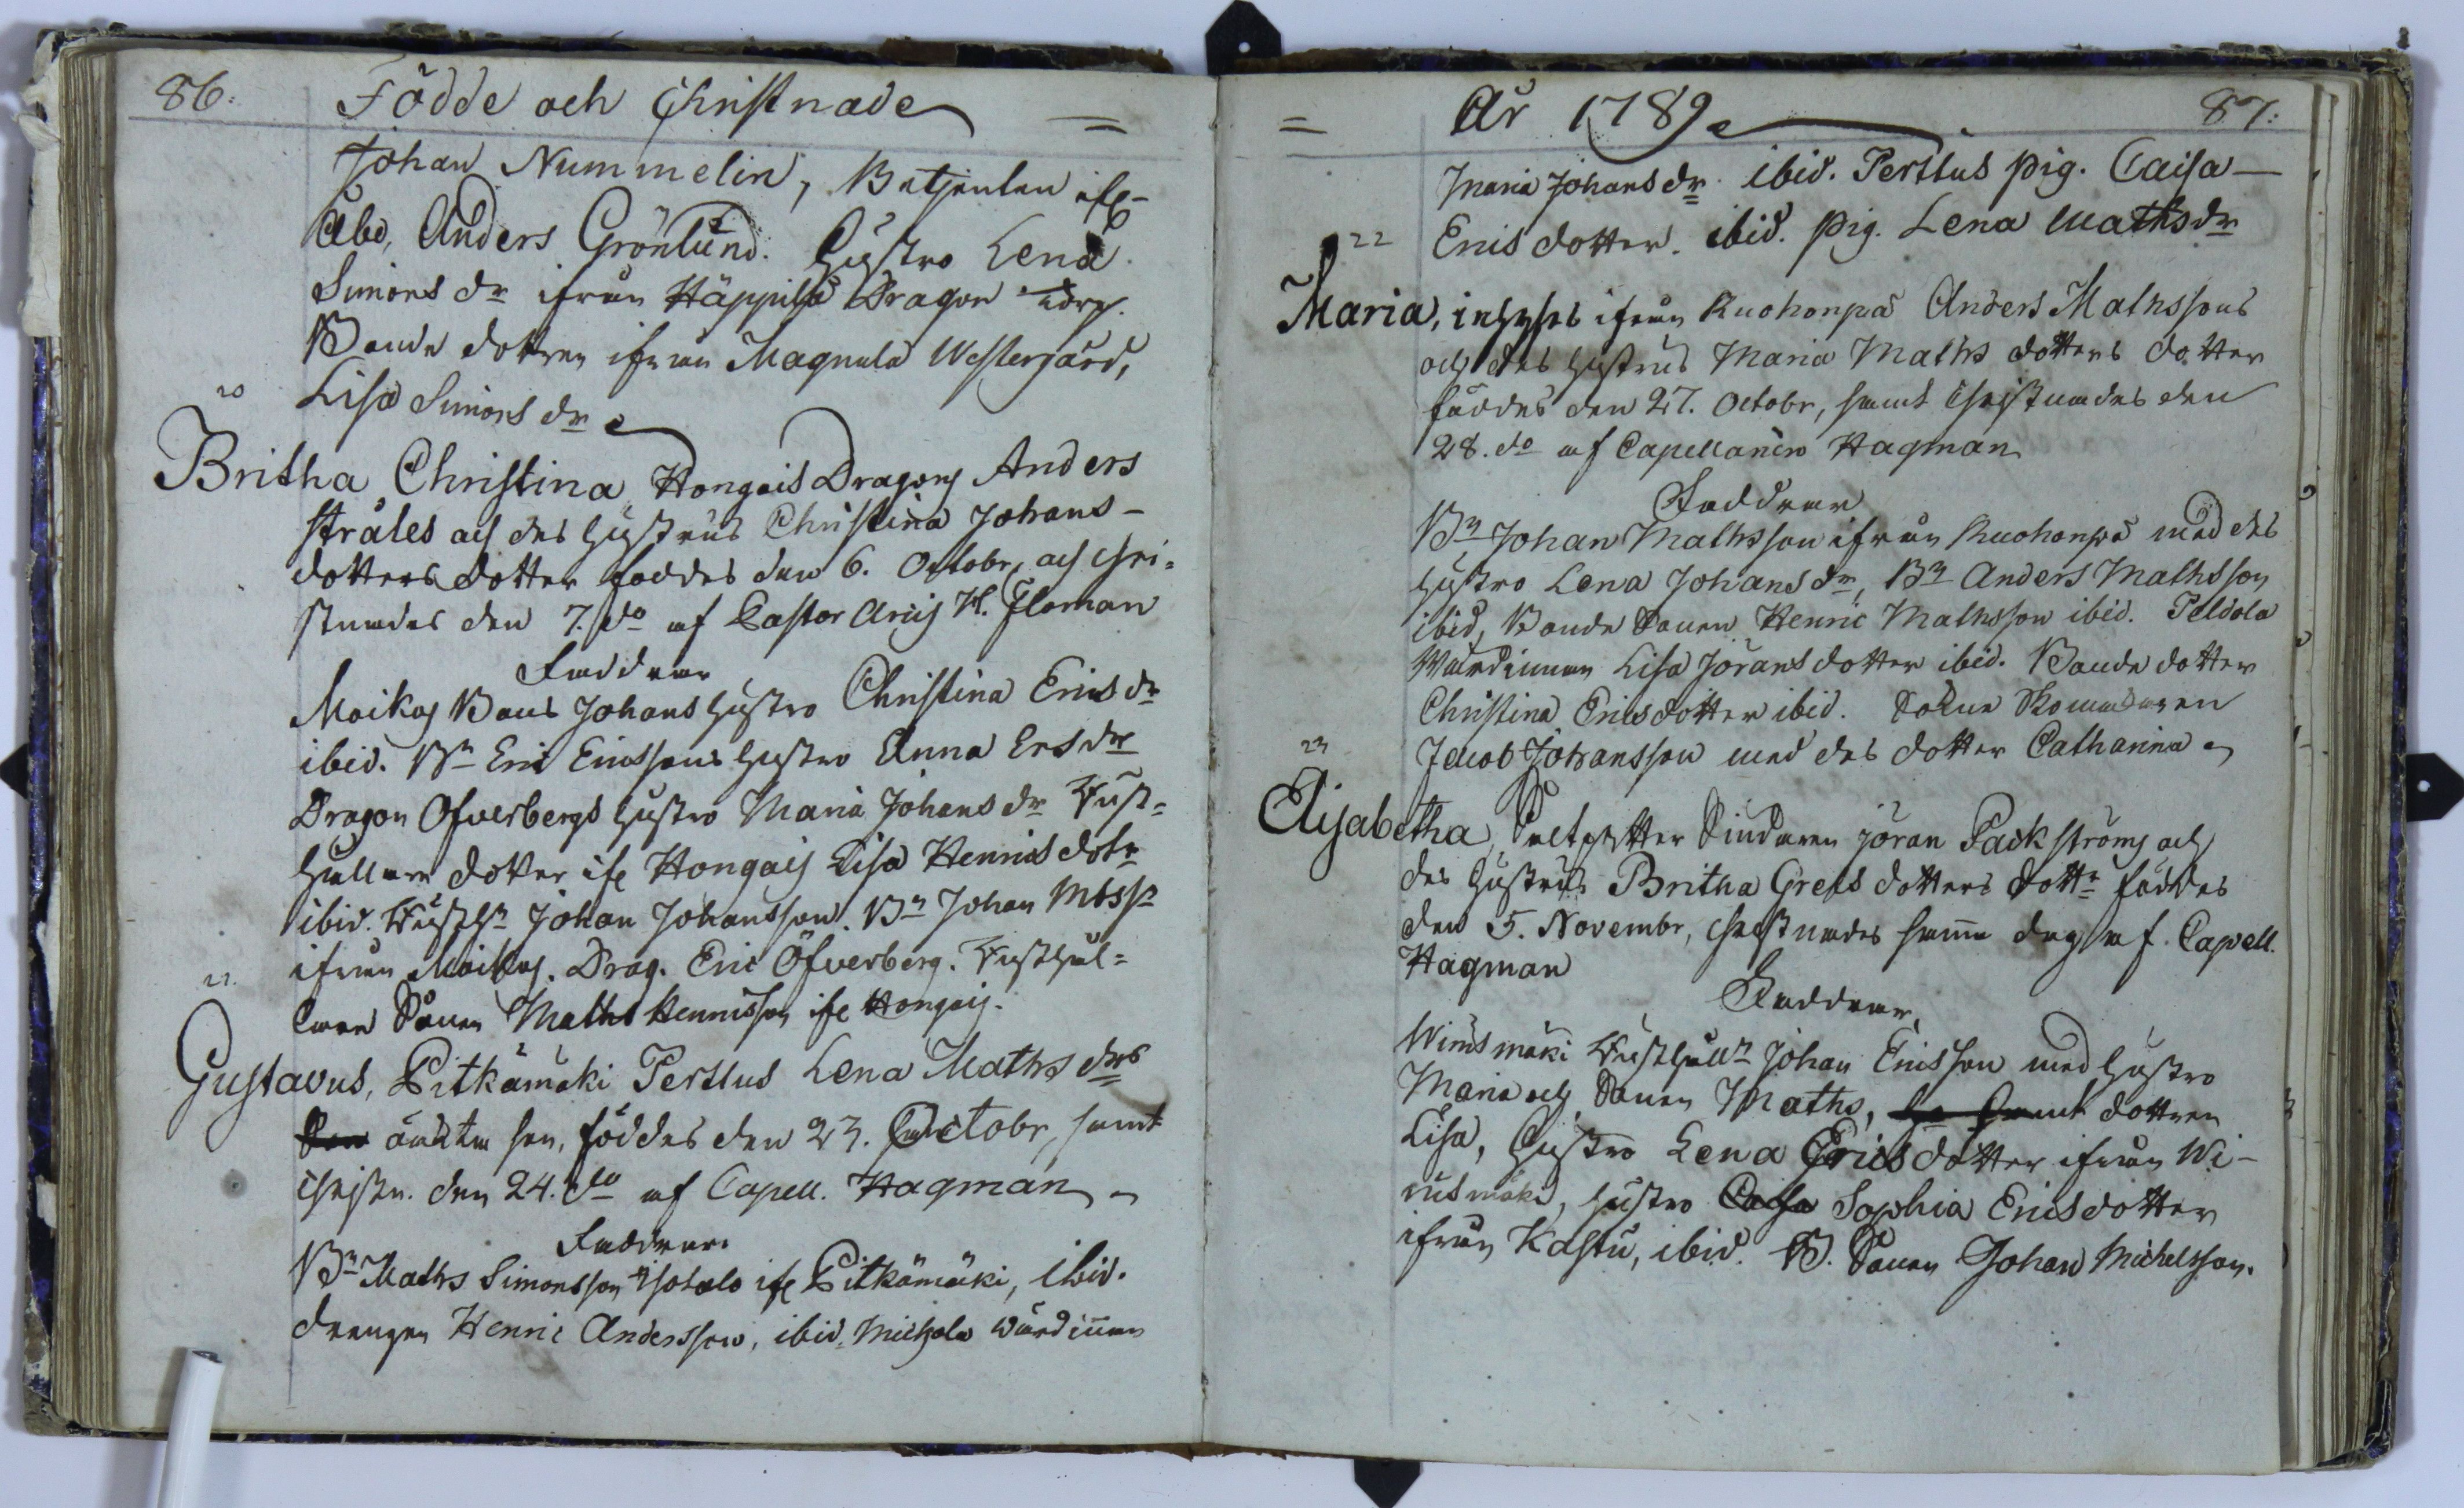 86.
Födde och Christnade =
Johan Nummelin, Betjenten ifr
Åbo, Anders Grönlund. Hustro Lena
Simons dr ifrån Häppilä Dragon torp.
Bonde dottren ifrån Magnula Westergård,
Lisa Simons dr
20
Britha Christina Hongais Dragons Anders
Stråles och des hustrus Christina Johans-
dotters dotter föddes den 6. Octobr, och chri-
stnades den 7. do af Pastor Arcij H. Floman
Faddrar
Moikois Bond Johans hustro Christina Erics dr
ibid. Bn Eric Ericssons hustro Anna Ersdr
Dragon Öfverbergs hustro Maria Johans dr Rust-
hållare dotter ifr Hongais Lisa Henrics dotr
ibid. Rusthn Johan Johansson. Bn Johan Mtssn
ifrån Moikois. Drag. Eric Öfverberg. Rusthål-
lare Sonen Maths Henricsson ifr Hongais.
21.
Gustavus, Pitkämäki Perttus Lena Maths drs
oäkta son, föddes den 23. Octobr, samt
christn. den 24. do af Capell. Hagman
Faddrar
Bn Maths Simonsson Isotalo ifr Pitkämäki, ibid.
drengen Henric Andersson, ibid. Michola wärdinnan
= År 1789
87.
Maria Johans dr ibid. Perttus pig. Caisa
Erics dotter. ibid. pig. Lena Maths dr
22
Maria, inhyses ifrån Ruohonpä Anders Mathssons
och des hustrus Maria Maths dotters dotter
föddes den 27. Octobr, samt christnades den
28. do af Capellanen Hagman
Faddrar
Bn Johan Mathsson ifrån Ruohonpä med des
hustro Lena Johans dr, Bn Anders Mathsson
ibid, Bonde Sonen Henric Mathsson ibid. Peldola
Wärdinnan Lisa Jörans dotter ibid. Bonde dotter
Christina Erics dotter ibid. Sokne Skomakaren
Jacob Johansson med des dotter Catharina
23
Elisabetha, Saltpetter Siudaren Jöran Packströms och
des hustrus Britha Grels dotters dottr föddes
den 5. Novembr, christnades samma dag af Capell.
Hagman
Faddrar
Wirusmäki Rusthålln Johan Ericsson med hustro
Maria och Sonen Maths, samt dottren
Lisa, hustro Lena Erics dotter ifrån Wi-
rusmäki, hustro Sophia Ericsdotter
ifrån Kastu, ibid. B. Sonen Johan Michelsson.